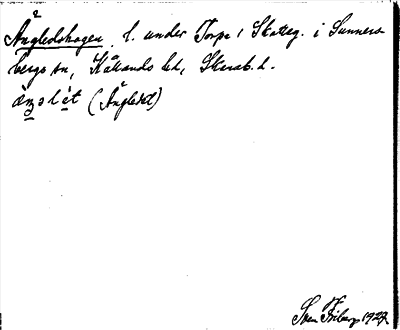 Ängledshagen, l. under Torpa, Skatteg. i Sunners
bergs sn, Kållands hd, Skarab. l.
(Ängledet)
Sven Friberg 1927.